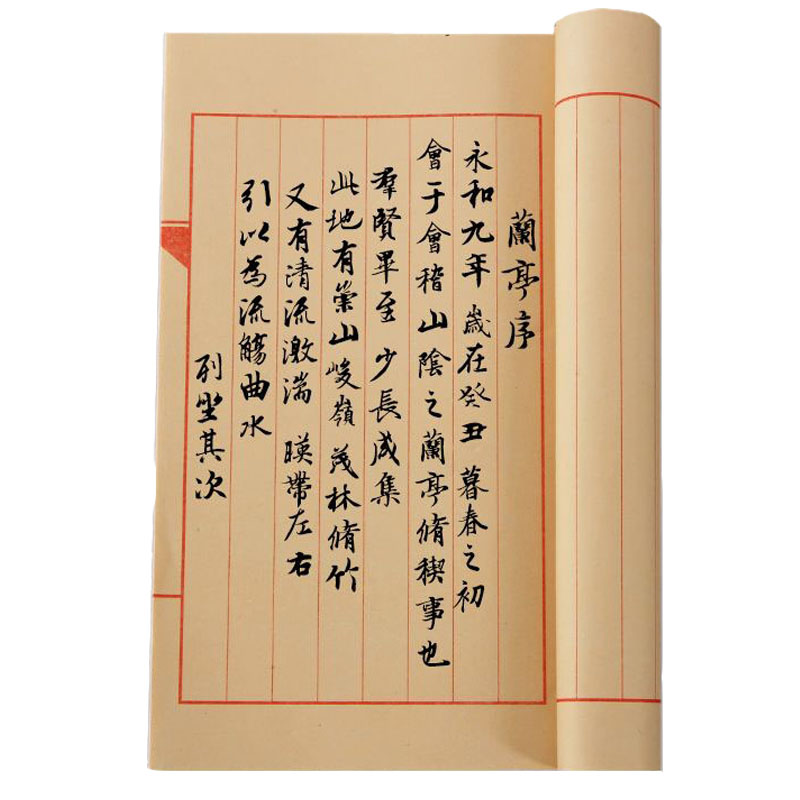 蘭亭序
永和九年 歲在癸丑 暮春之初
會于會稽山陰之蘭亭脩稧事也
羣賢畢至 少長咸集
此地有崇山峻嶺 茂林脩竹
又有清流激湍 暎帶左右
引以為流觴曲水
列坐其次